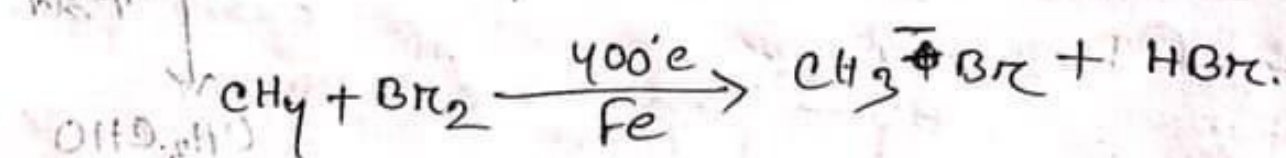 CH4 + Br2 400°c/Fe → CH3-Br + HBr.